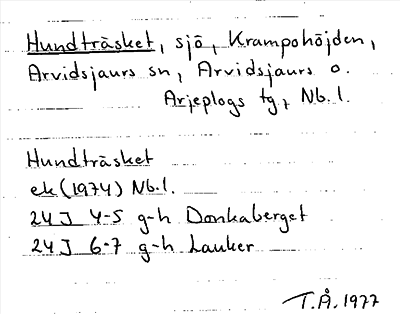 Hundträsket, sjö, Krampohöjden,
Arvidsjaurs sn, Arvidsjaurs o.
Arjeplogs tg, Nb.l.
Hundträsket
ek (1974) Nb.l.
24J 4-5 g-h Donkaberget
24J 6-7 g-h Lauker
T.Å. 1977